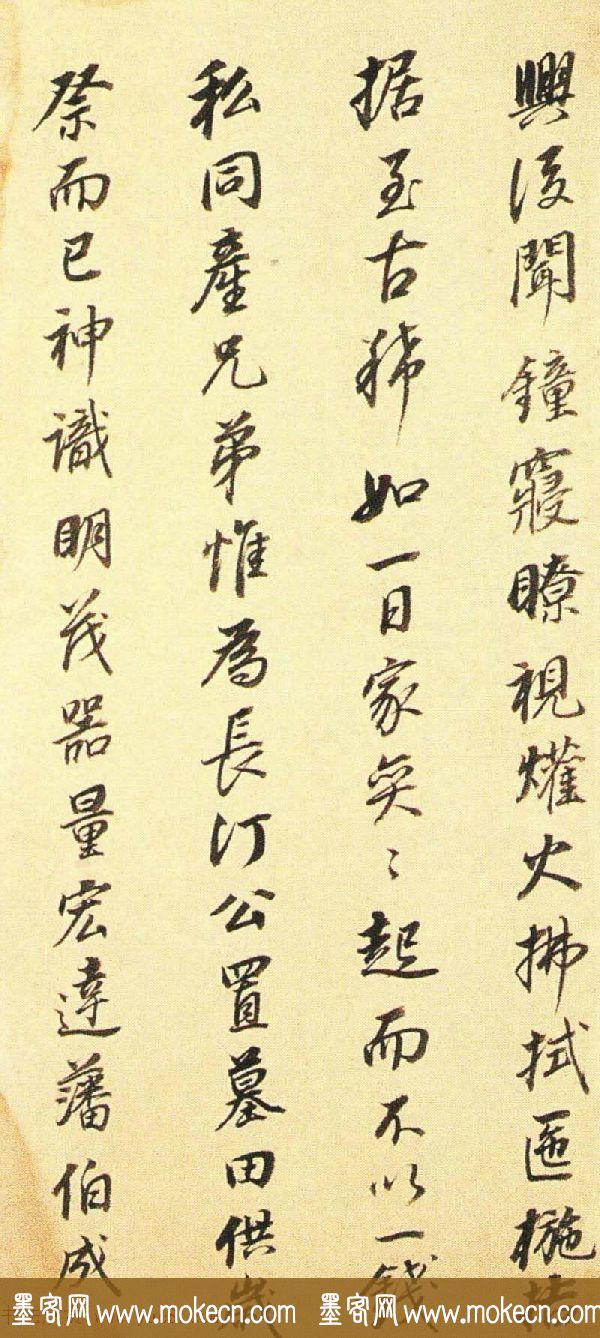 興後聞鐘寢瞭視爟火拂拭匜椸
据至古稀如一日家奕〻起而不以一錢
私同產兄弟惟為長汀公置墓田供歲
祭而已神識明茂器量宏達藩伯咸
墨客网 www.mokecn.com 墨客网 www.mokecn.com